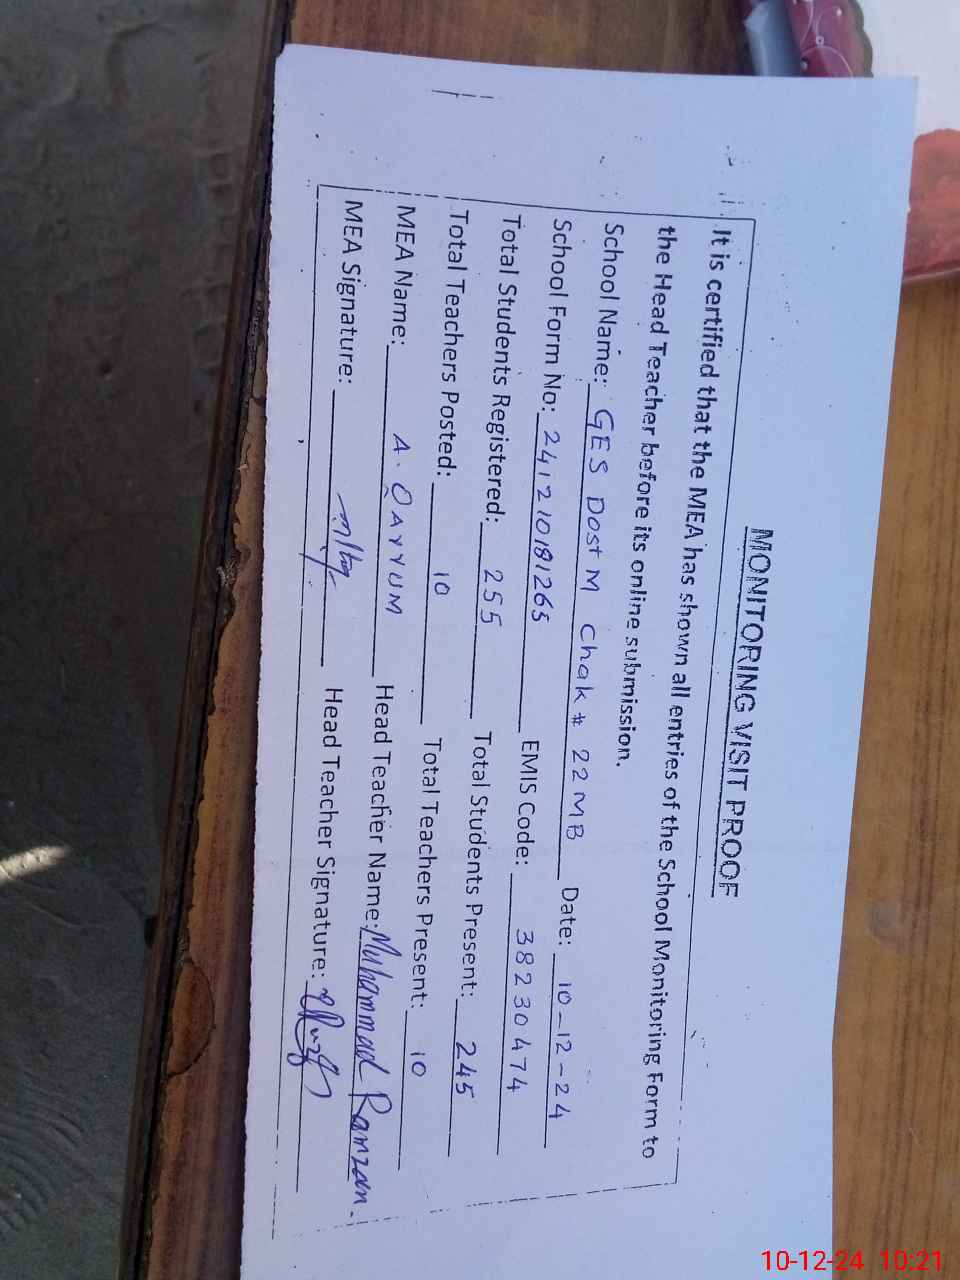 MONITORING VISIT PROOF
It is certified that the MEA has shown all entries of the School Monitoring Form to
the Head Teacher before its online submission.
School Name: GES Dost M Chak # 22MB Date: 10-12-24
School Form No: 241210181265 EMIS Code: 38230474
Total Students Registered: 255 Total Students Present: 245
Total Teachers Posted: 10 Total Teachers Present: 10
MEA Name: A. QAYYUM Head Teacher Name: Muhammad Ramzan.
MEA Signature: Head Teacher Signature:
10-12-24 10:21